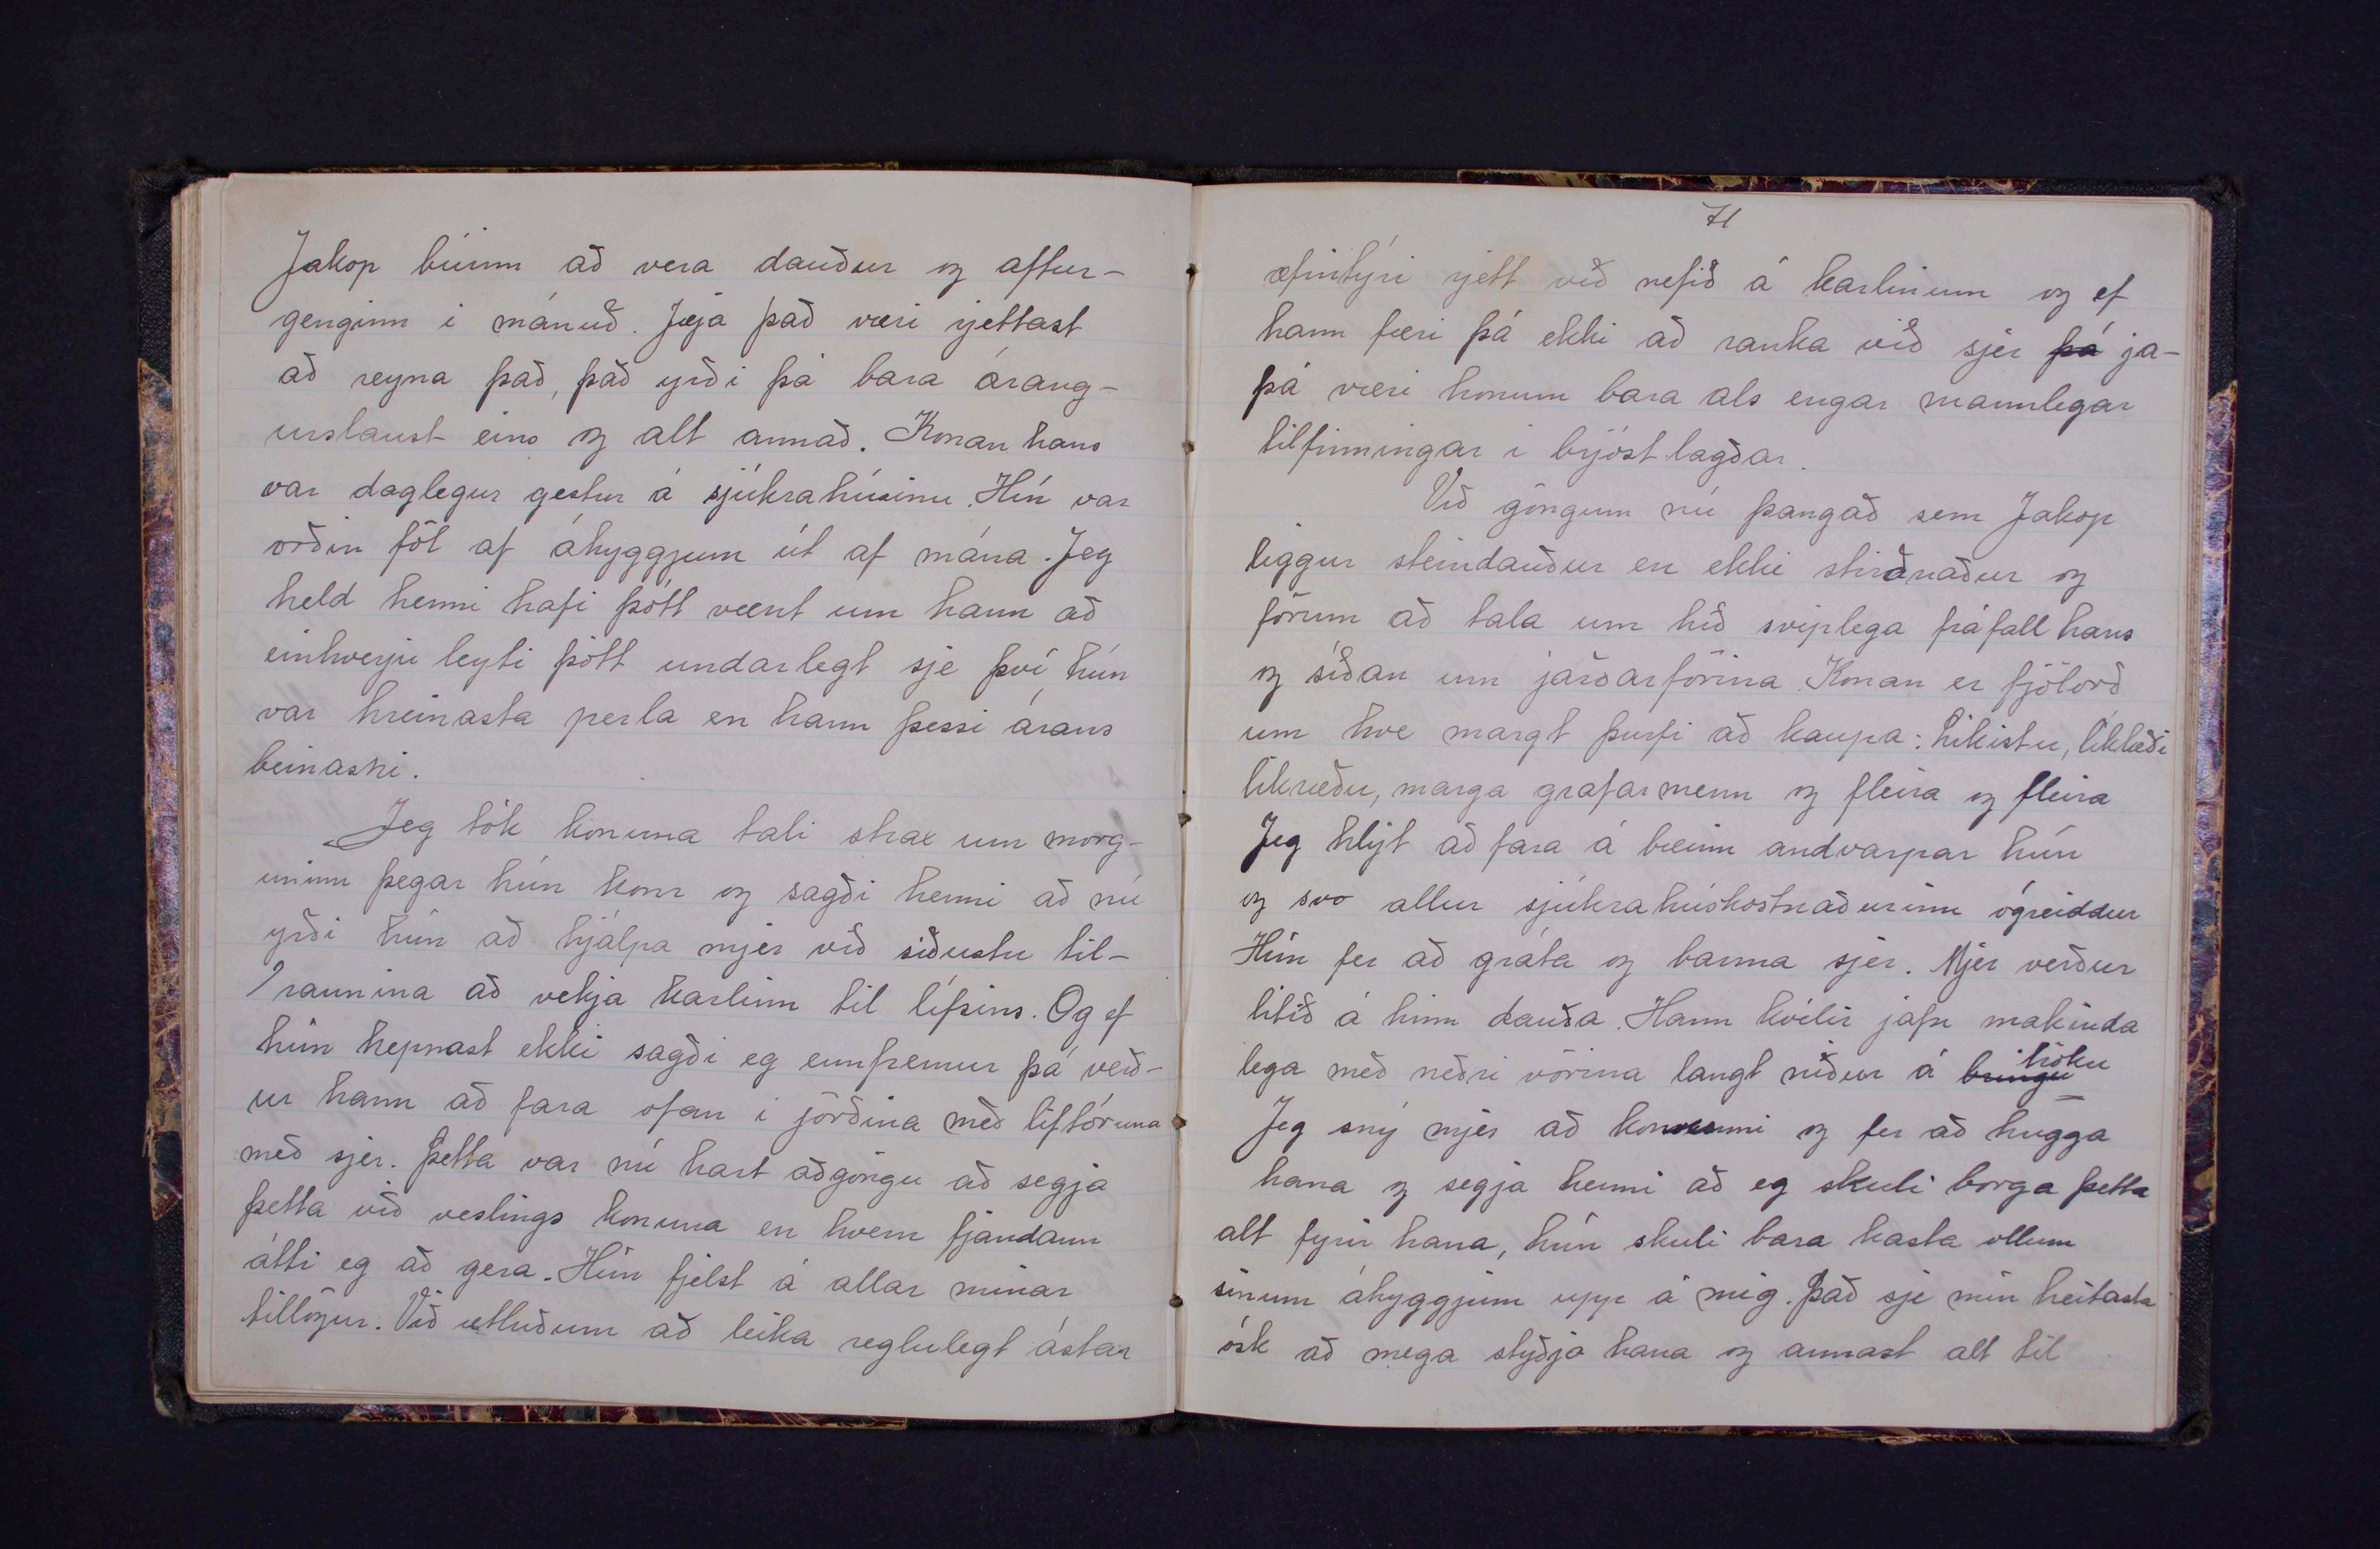 Jakop búinn að vera dauður og aftur-
genginn í mánuð. Jæja það væri rjettast
að reyna það, það yrði þá bara árang-
urslaust eins og alt annað. Konan hans
var daglegur gestur á sjúkrahúsinu. Hún var
orðin föl af áhyggjum út af mána. Jeg
held henni hafi þótt vænt um hann að
einhverju leyti þótt undarlegt sje því hún
var hreinasta perla en hann þessi árans
beinaski.
Jeg tók konuna tali strax um morg-
uninn þegar hún kom og sagði henni að nú
yrði hún að hjálpa mjer við síðustu til-
raunina að vekja karlinn til lífsins. Og ef
hún hepnast ekki sagði eg ennfremur þá verð-
ur hann að fara ofan í jörðina með líftóruna
með sjer. Þetta var nú hart aðgöngu að segja
þetta við veslings konuna en hvern fjandann
átti eg að gera. Hún fjelst á allar mínar
tillögur. Við ætluðum að leika reglulegt ástar
71
æfintýri rjett við nefið á karlinum og ef
hann færi þá ekki að ranka við sjer þá ja-
þá væri honum bara als engar mannlegar
tilfinningar í brjóst lagðar.
Við göngum nú þangað sem Jakop
liggur steindauður en ekki stirðnaður og
förum að tala um hið sviplega fráfall hans
og síðan um jarðarförina. Konan er fjölorð
um hve margt þurfi að kaupa: Líkistu, líklæði
líkræðu, marga grafarmenn og fleira og fleira
Jeg hlýt að fara á bæinn andvarpar hún
og svo allur sjúkrahúskostnaðurinn ógreiddur
Hún fer að gráta og barma sjer. Mjer verður
litið á hinn dauða. Hann hvílir jafn makinda
lega með neðri vörina langt niður á bringu höku
Jeg sný mjer að konunni og fer að hugga
hana og segja henni að eg skuli borga þetta
alt fyrir hana, hún skuli bara kasta öllum
sínum áhyggjum upp á mig. Það sje mín heitasta
ósk að mega styðja hana og annast alt til